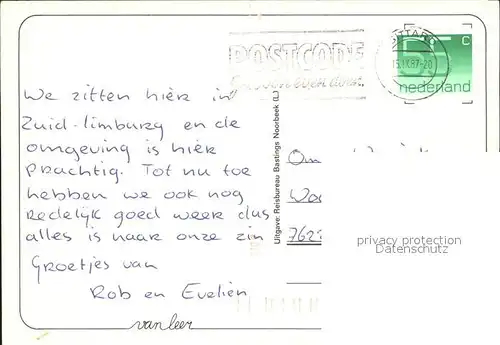 POSTCODE
SITTARD
15.IX.87-20
5
C
nederland
We zitten hier in
Zuid-limburg en de
omgeving is hier
Prachtig. Tot nu toe
hebben we ook nog
Redelijk goed weer dus
alles is naar onze zin
Groetjes van
Rob en Evelien
Uitgave: Reisbureau Bastings Noorbeek (L)
762
privacy protection
Datenschutz
van leer